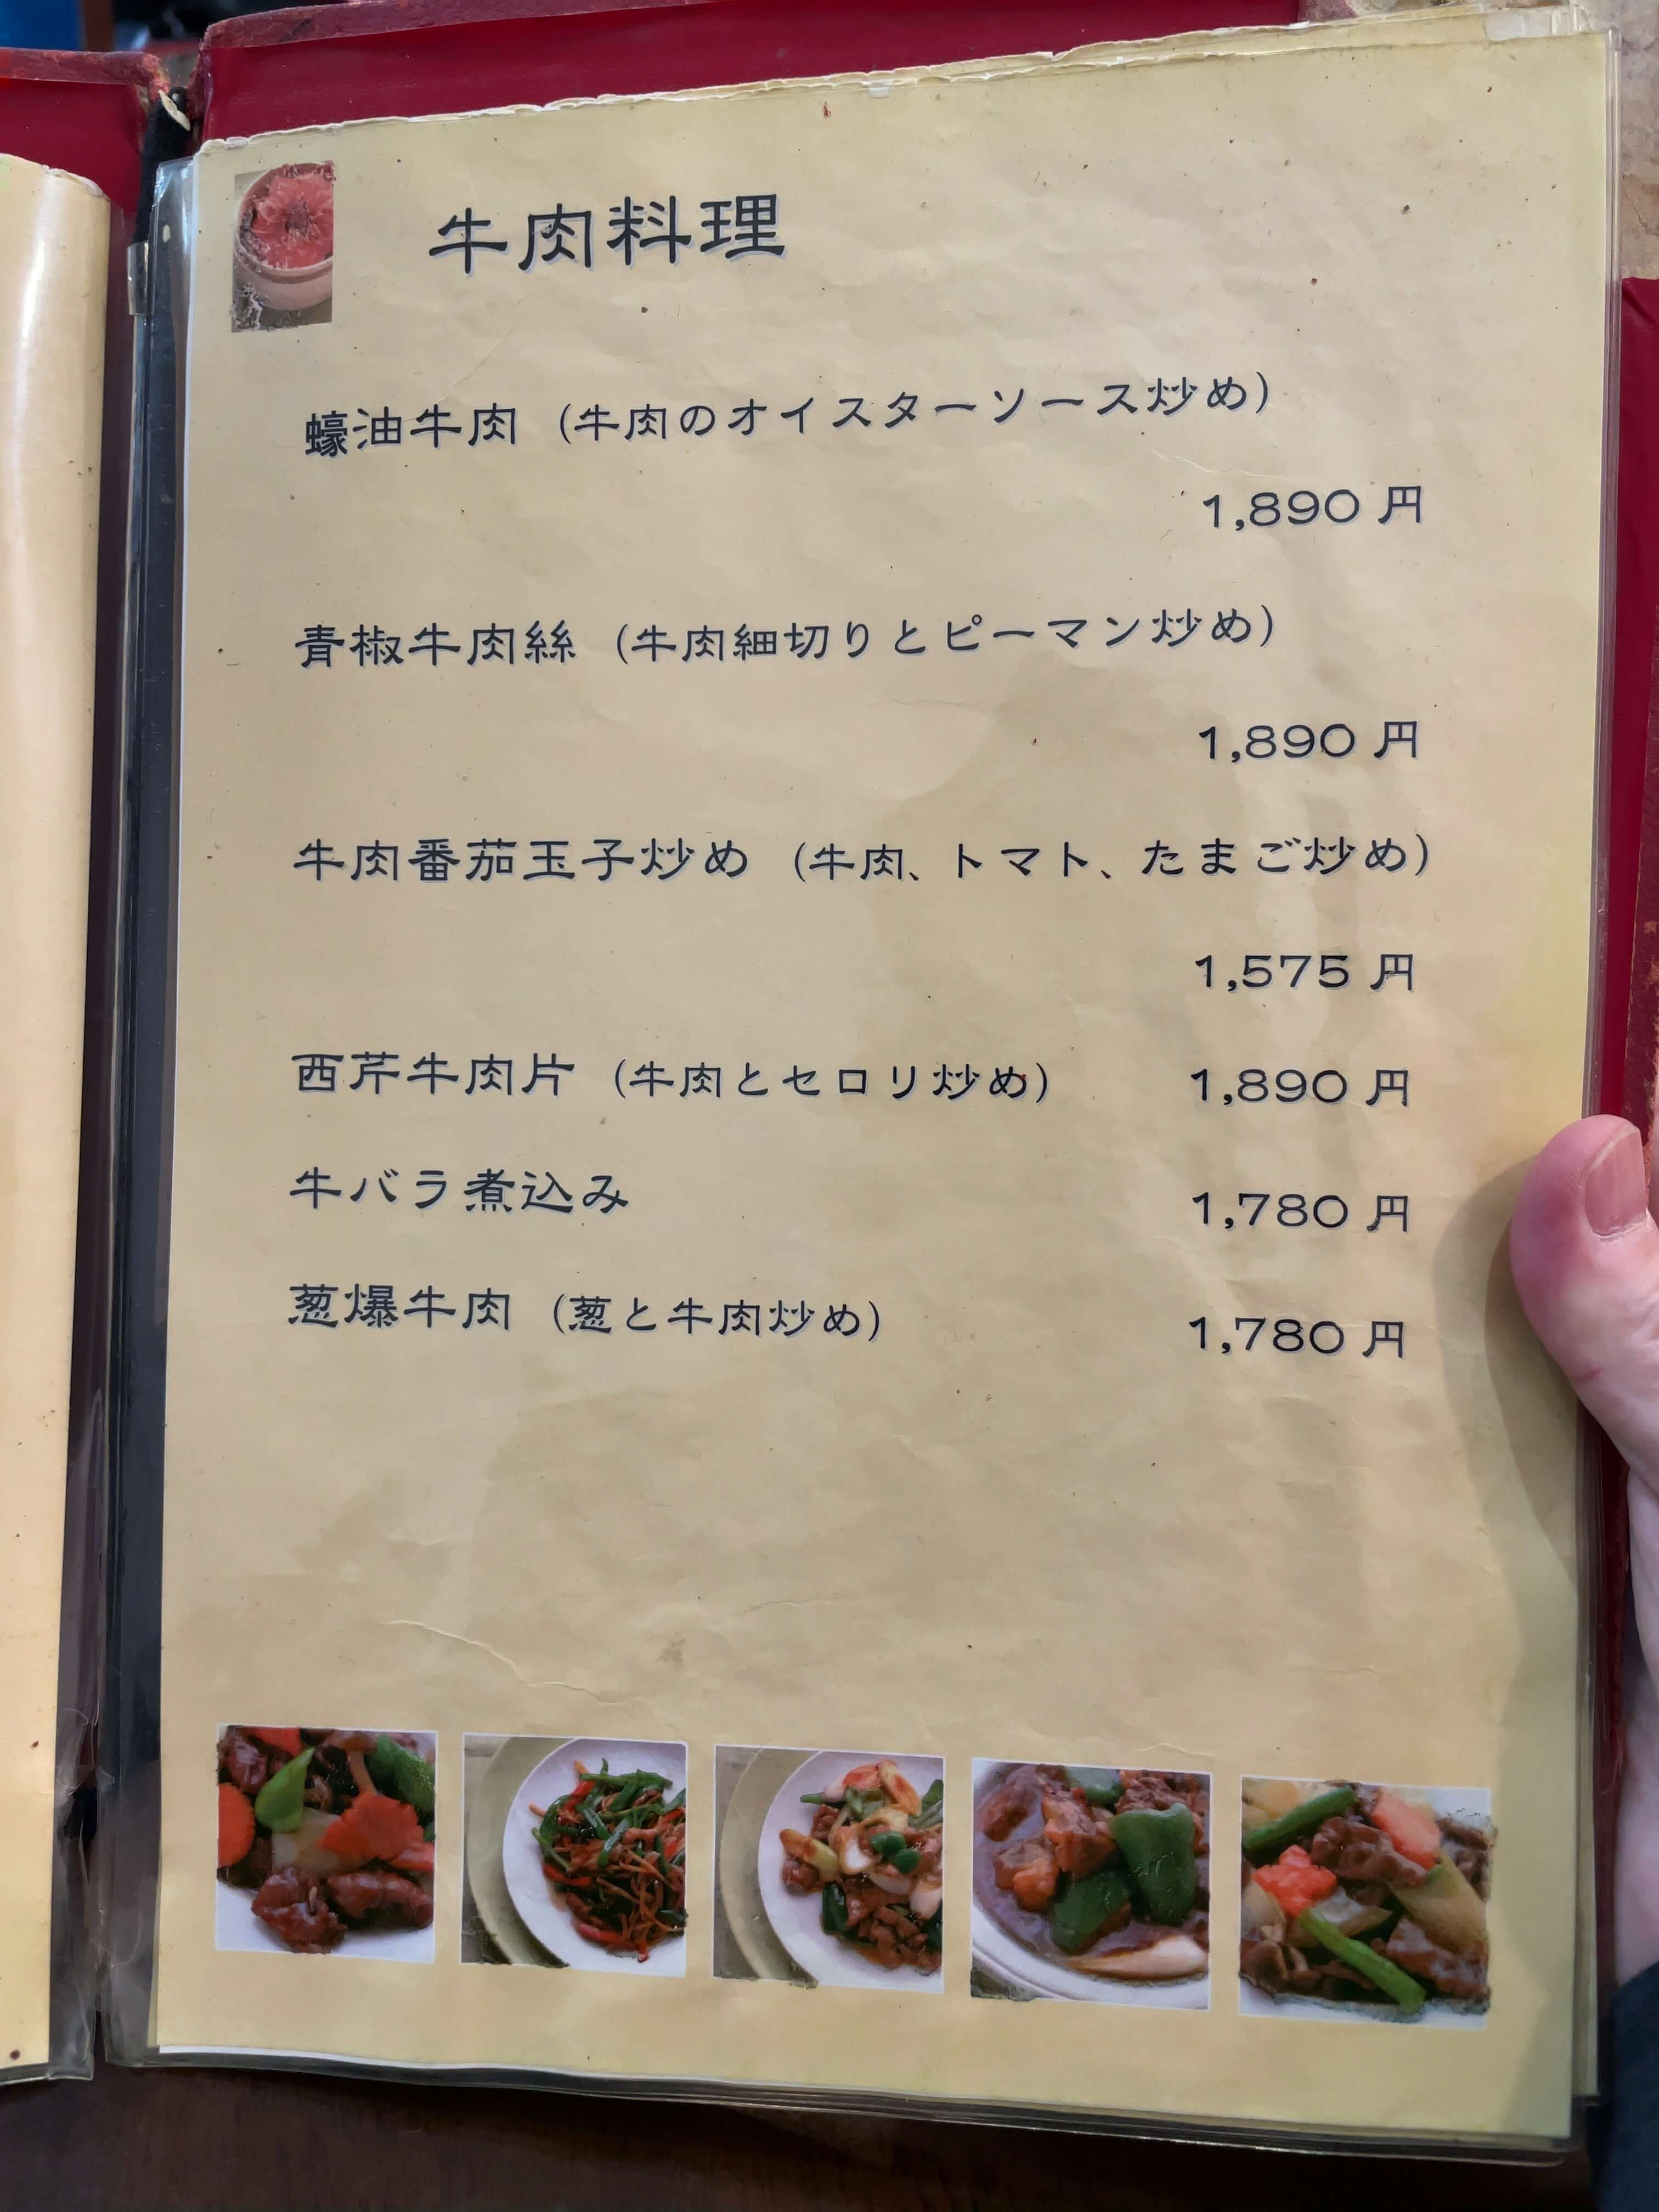 牛肉料理
蠔油牛肉（牛肉のオイスターソース炒め）
1,890 円
青椒牛肉絲（牛肉細切りとピーマン炒め）
1,890 円
牛肉番茄玉子炒め（牛肉、トマト、たまご炒め）
1,575 円
西芹牛肉片（牛肉とセロリ炒め） 1,890 円
牛バラ煮込み 1,780 円
葱爆牛肉（葱と牛肉炒め） 1,780 円